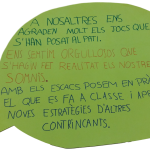 A NOSALTRES ENS
AGRADEN MOLT ELS JOCS QUE
S'HAN POSAT AL PATI.
ENS SENTIM ORGULLOSOS QUE
S'HAGIN FET REALITAT ELS NOSTRES
SOMNIS.
AMB ELS ESCACS POSEM EN PRÀ
EL QUE ES FA A CLASSE I APR
NOVES ESTRATÈGIES D'ALTRES
CONTRINCANTS.